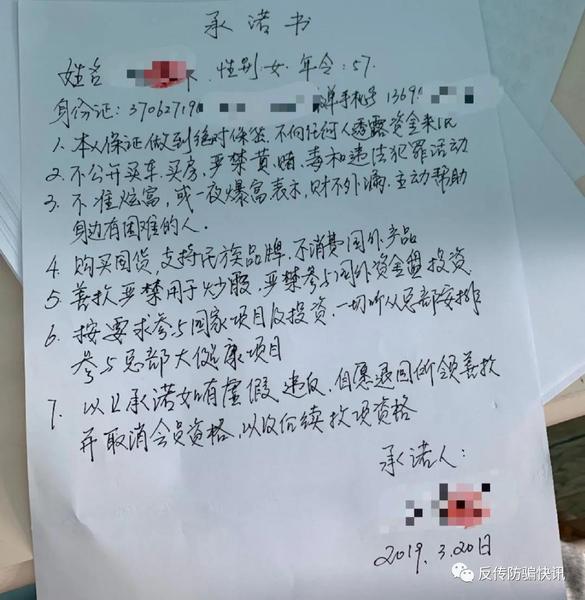 承诺书
姓名 性别女.年令:57.
身份证:37062719 手机号1369
1.本人保证做到绝对保密,不向任何人透露资金来源
2.不公开买车.买房,严禁黄.赌.毒和违法犯罪活动
3.不准炫富,或一夜爆富表示,财不外漏.主动帮助
身边有困难的人.
4.购买国货,支持民族品牌,不消费国外产品
5.善款严禁用于炒股,严禁参与国外资金盘投资
6.按要求参与国家项目及投资,一切听从总部安排
参与总部大健康项目
7.以上承诺如有虚假 违反,自愿退回所领善款
并取消会员资格,以及后续拨项资格
承诺人:
2019.3.20日
反传防骗快讯